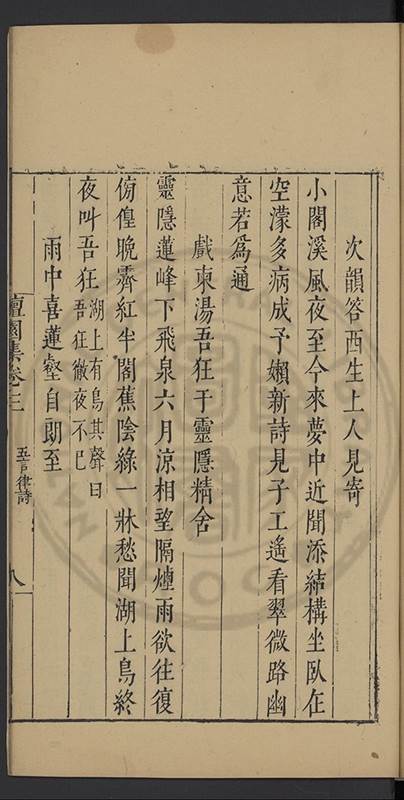 次韻答西生上人見寄
小閣溪風夜至今來夢中近聞添結構坐臥在
空濛多病成予嬾新詩見子工遙看翠微路幽
意若為通
戲柬湯吾狂于靈隱精舍
靈隱蓮峰下飛泉六月涼相望隔煙雨欲往復
徬徨晚霽紅半閣蕉陰綠一牀愁聞湖上鳥終
夜叫吾狂 湖上有鳥其聲曰
吾狂徹夜不已
雨中喜蓮壑自朗至
檀園集卷三
五言律詩
八